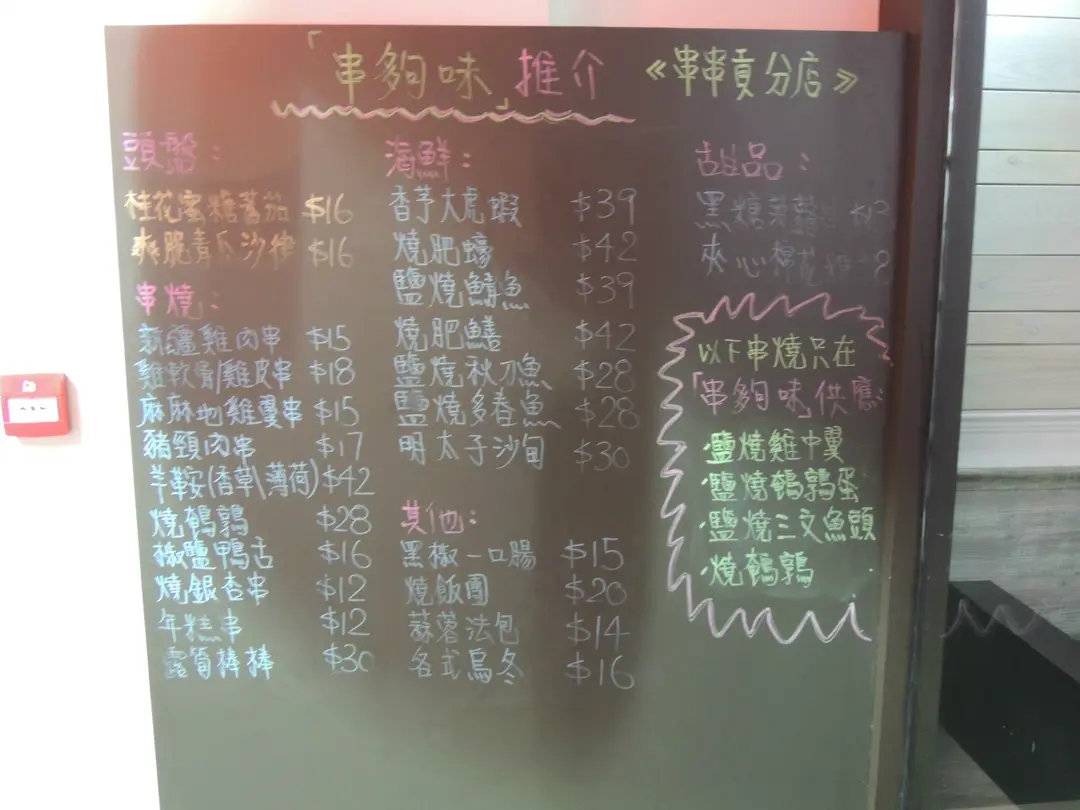 「串夠味」推介 《串串貢分店》
頭盤：
桂花蜜糖蕃茄 $16
爽脆青瓜沙律 $16
串燒：
新疆雞肉串 $15
雞軟骨/雞皮串 $18
麻麻地雞腎串 $15
豬頸肉串 $17
羊鞍(香草\薄荷) $42
燒鵪鶉 $28
椒鹽鴨舌 $16
燒銀杏串 $12
年糕串 $12
露筍棒棒 $30
海鮮：
香芋大虎蝦 $39
燒肥蠔 $42
鹽燒鯖魚 $39
燒肥鱔 $42
鹽燒秋刀魚 $28
鹽燒多春魚 $28
明太子沙甸 $30
其他：
黑椒一口腸 $15
燒飯團 $20
蒜蓉法包 $14
各式烏冬 $16
甜品：
黑糖
夾心棉花
以下串燒只在
「串夠味」供應
·鹽燒雞中翼
·鹽燒鵪鶉蛋
·鹽燒三文魚頭
·燒鵪鶉